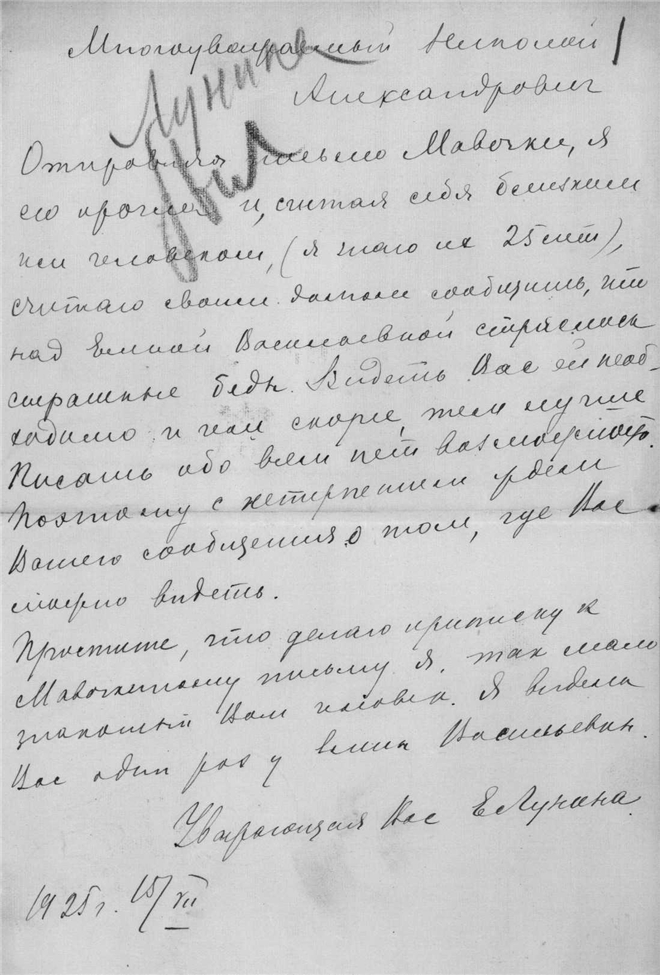 Многоуважаемый Николай
Александрович
Лунина
Отправляя письмо Мавочки, я
его прочла и, считая себя близким
им человеком, (я знаю их 25 лет),
считаю своим долгом сообщить, что
над Еленой Васильевной стряслись
страшные беды. Видеть Вас ей необ-
ходимо и чем скорее, тем лучше
Писать обо всем нет возможности.
Поэтому с нетерпением ждем
Вашего сообщения о том, где Вас
можно видеть.
Простите, что делаю приписку к
Мавочкиному письму я, так мало
знакомый Вам человек. Я видела
Вас один раз у Елены Васильевны.
Уважающая Вас ЕЛунина
1925 г. 15/VII